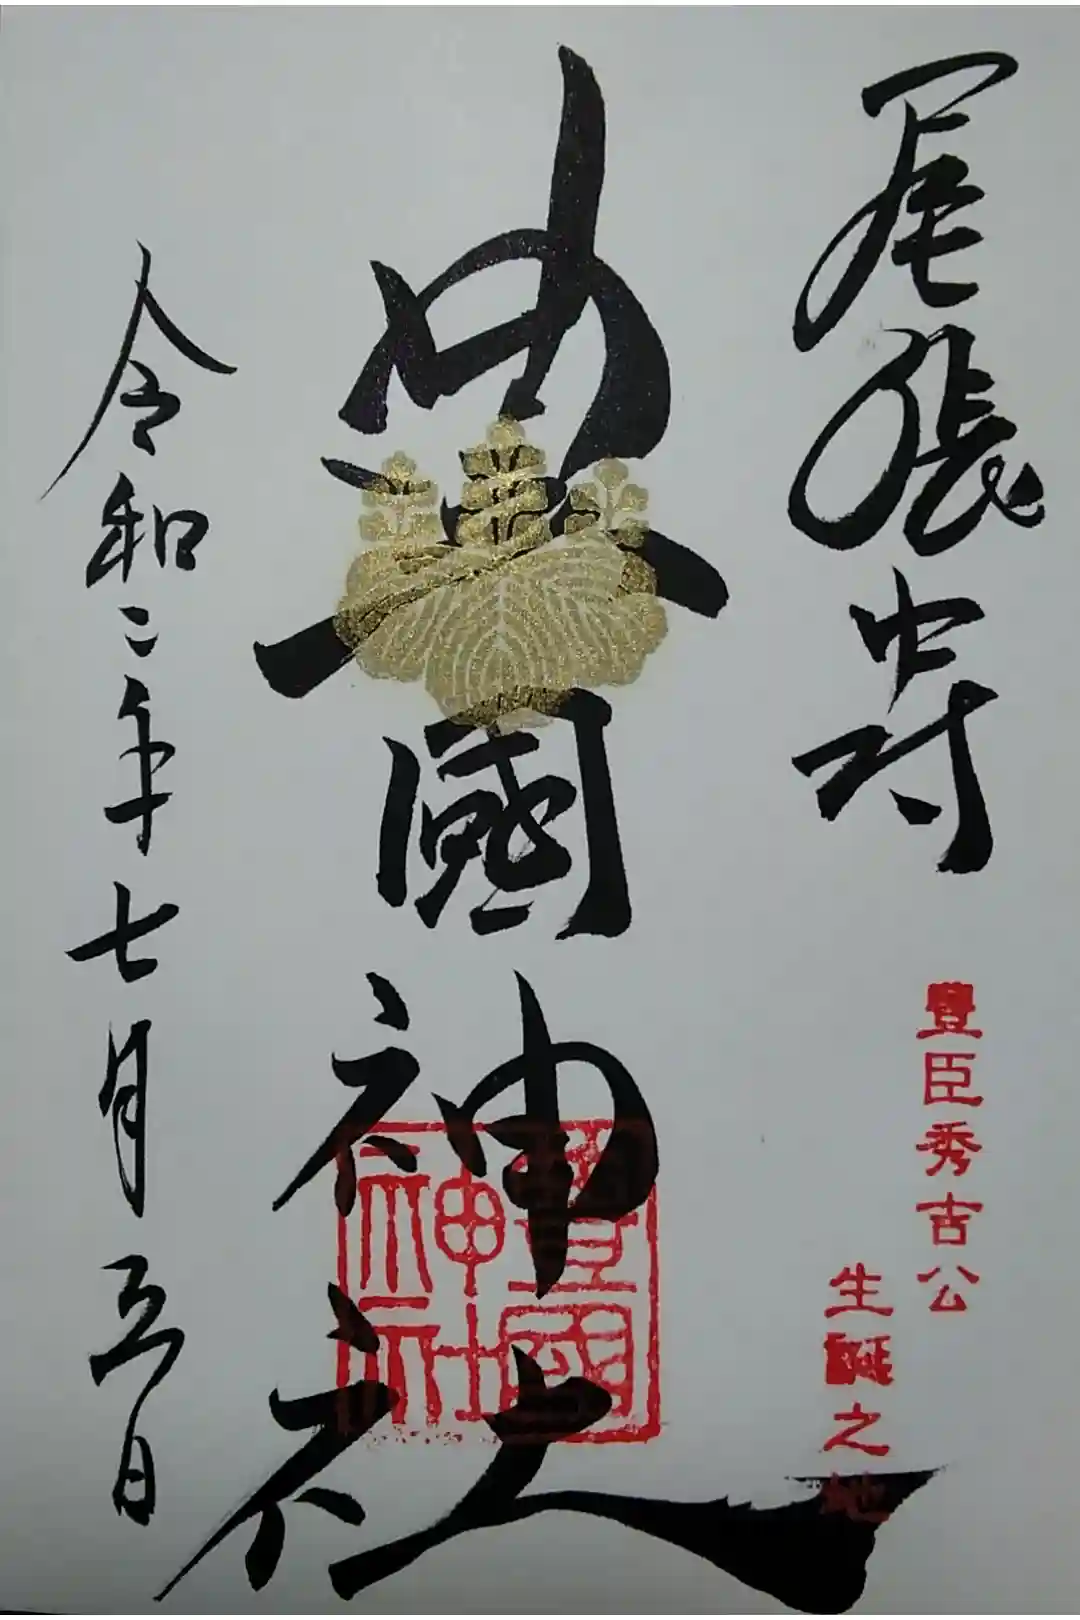 尾張中村
豐臣秀吉公
生誕之地
豊國神社
豐國
神社
令和二年七月五日